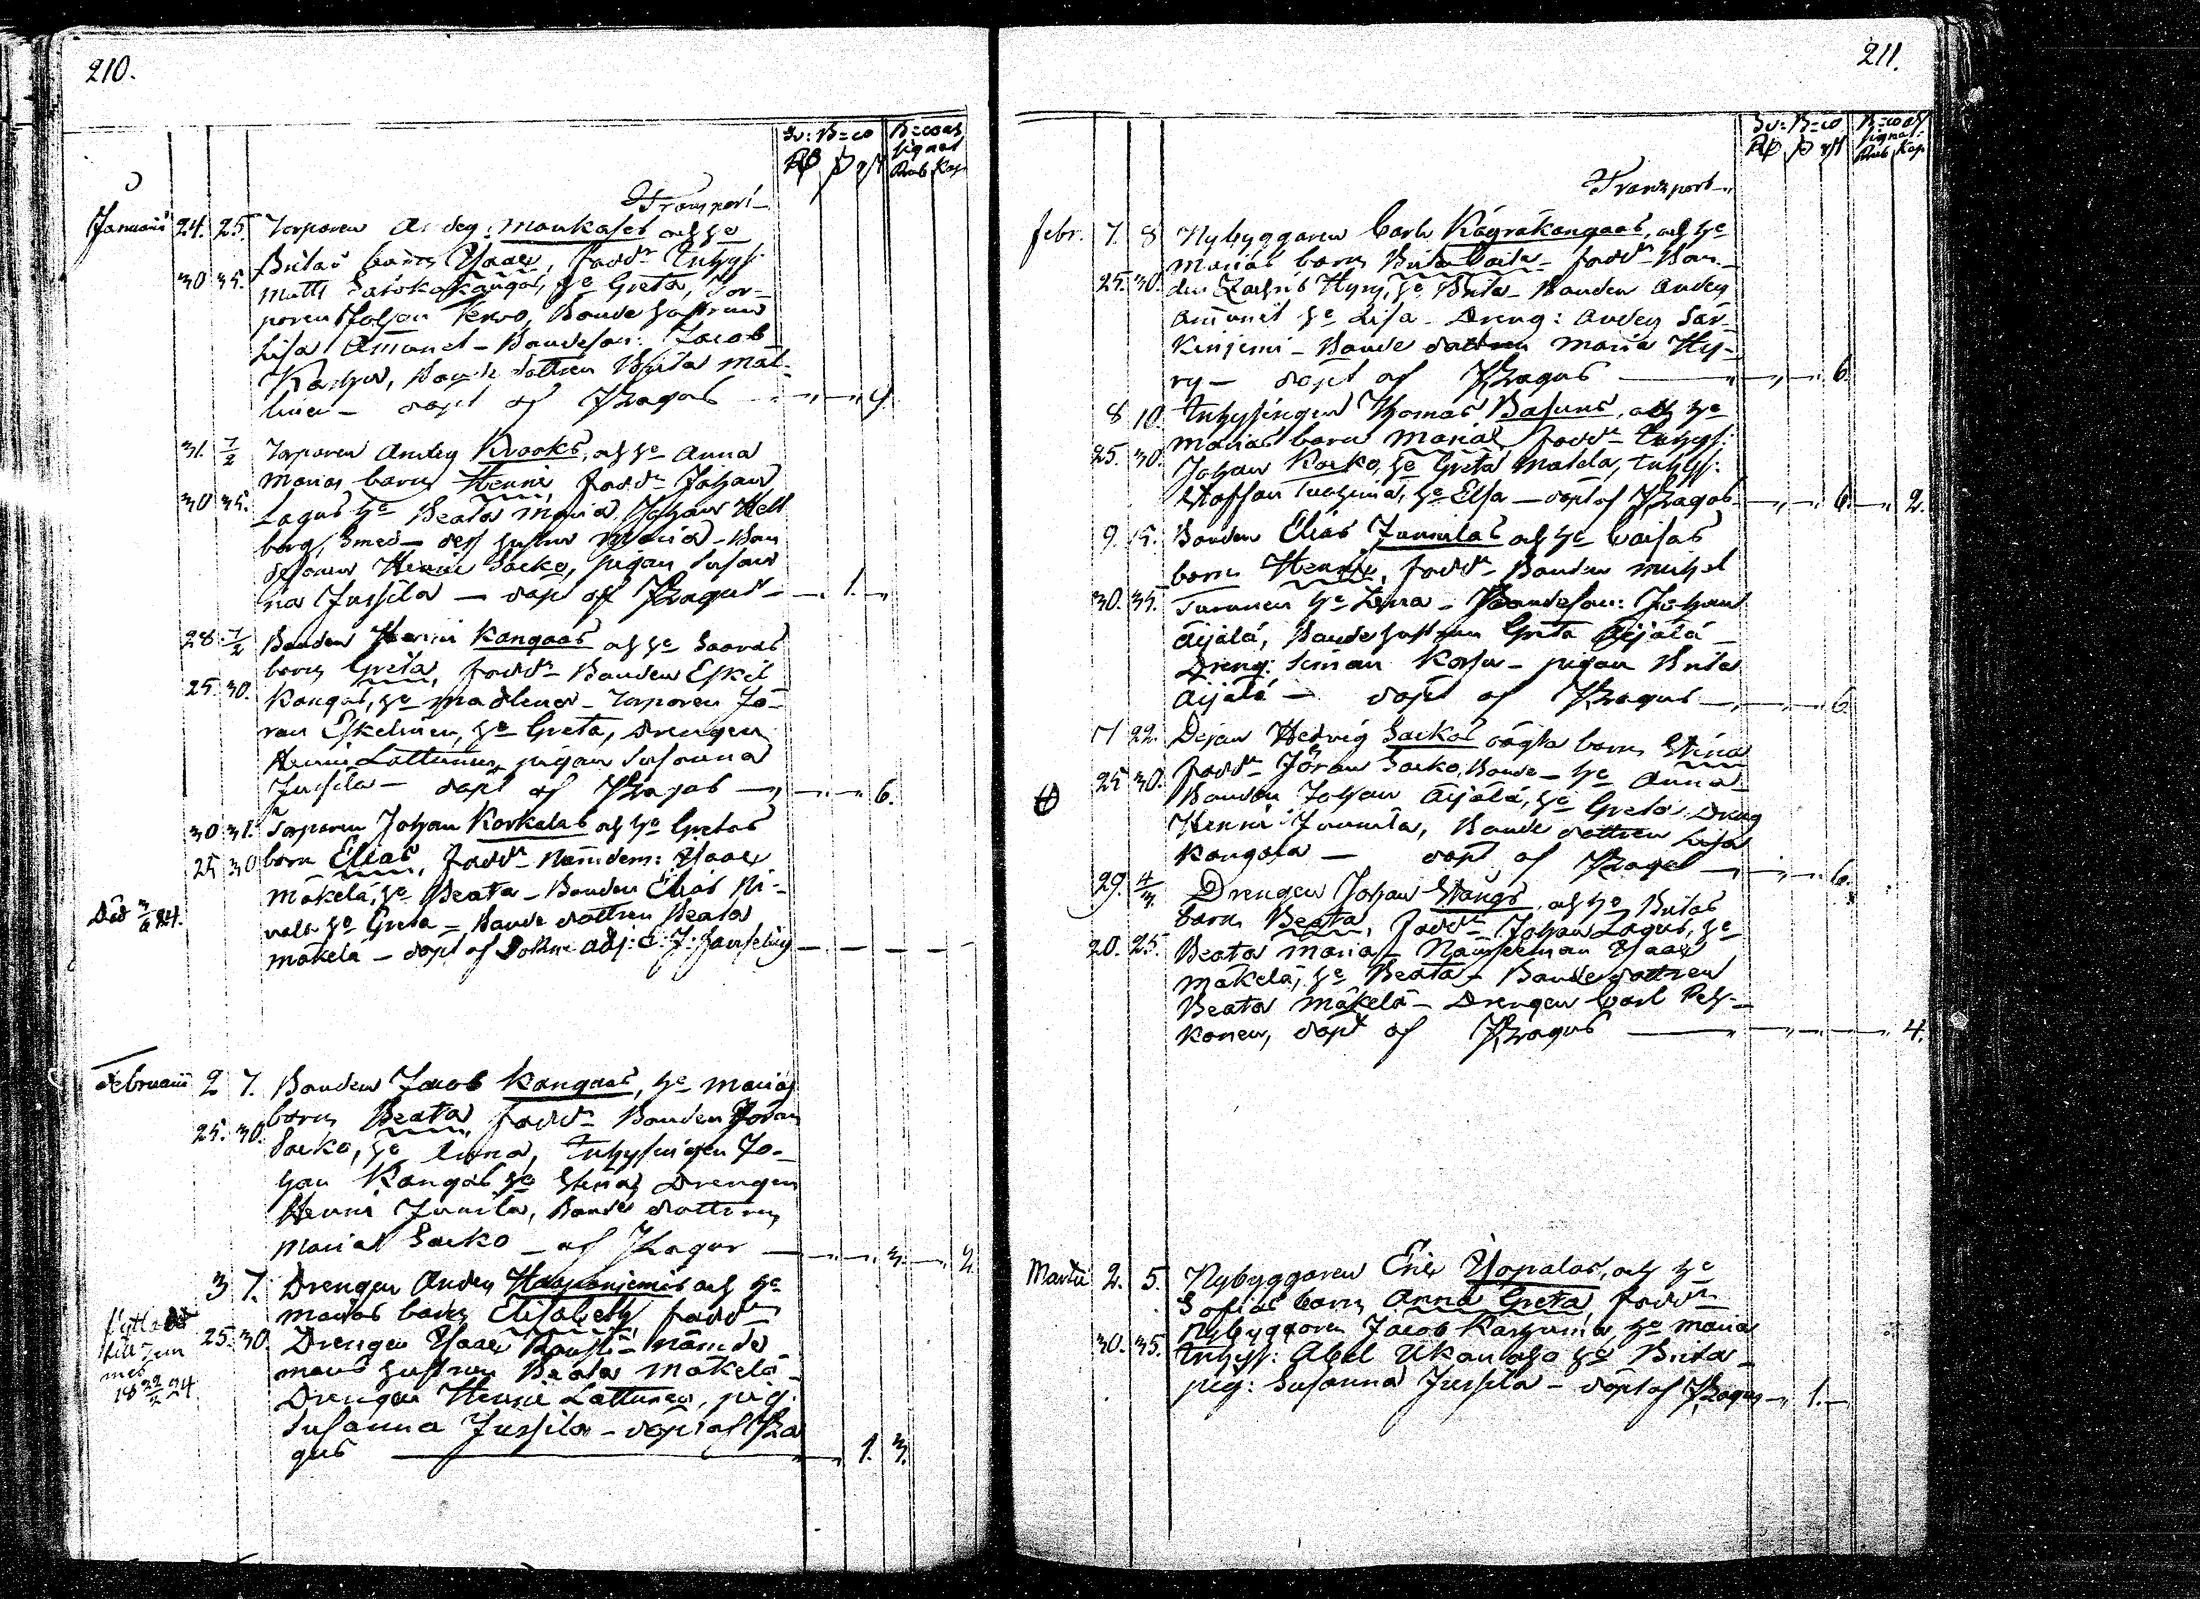 210.
Sv: B=co
B=co as
signat
Rub Kop
Transport
Januarii 24. 25. Torparen Anders Maukases och he
Britas barn Isaac, fadd. Inhys:
30 35. Matts he Greta, Tor-
paren Johan Kervo, Bonde hustrun
Lisa Amunet - Bondeson: Jacob
Bonde dottren Brita Mat-
linen - döpt af PLagus 9.
31. 7/2 Torparen Anders Krooks, och he Anna
Marias barn Henric, fadd. Johan
30 35. Lagus he Beata Maria, Johan Hell
berg, Smed - dess hustru Maria - Bon
desonen Henric Sarko, pigan Susan
na Jussila - döpt af PLagus 1.
28 7/2 Bonden Henric Kangaas och he Saaras
barn Greta, fadd. Bonden Eskil
25. 30. Kangas, he Madlena - Torparen Jö-
ran Eskelinen, he Greta, Drengen
Henric Lattunen, pigan Susanna
Jussila - döpt af PLagus 6.
30 31. Torparen Johan Korkalas och he Gretas
25 30 barn Elias, fadd. Nämdem: Isaac
Mäkelä, he Beata - Bonden Elias Ni-
Död 3/6 24. vala he Greta - Bonde dottren Beata
Mäkelä - döpt af Adj: C: J:
Februarii 2 7. Bonden Jacob Kangaas, he Marias
barn Beata, fadd. Bonden Jöran
25. 30. Sarko, he Anna, Inhysingen Jo-
han Kangas he Stina, Drengen
Henric Junila, Bonde dottren
Maria Sarko - af PLagus 3. 2
3 7. Drengen Anders Haapaniemis och he
Marias barn Elisabeth fadd.
25. 30. Drengen Isaac - Nämde
mans hustrun Beata Mäkelä
Drengen Henric Lattunen, pig:
Susanna Jussila - döpt af PLa
gus 1. 3.
18 22/2 24
211.
Sv: B=co
B=co as
signat:
Rub Kop
Transport
febr. 7. 8 Nybyggaren Carl Kägräkangaas, och he
Marias barn Brita Caisa - fadd. Bon-
25. 30. den Zachris Hyry, he Brita - Bonden Anders
Amunet he Lisa - Dreng: Anders Sär-
kiniemi - Bonde dottren Maria Hy-
ry - döpt af PLagus 6.
8 10. Inhysingen Thomas Basuns, och he
Marias barn Maria, fadd. Inhys:
25. 30. Johan Korko, he Greta Matela, Inhys:
Staffan Tuohima, he Elsa - döpt af PLagus 6. 2.
9. 15. Bonden Elias Junnilas och he Caisas
barn Henric, fadd. Bonden Michel
30. 35. Turunen he Lena - Bondeson: Johan
Äijälä, Bonde hustrun Greta Äijälä -
Dreng: Simon - pigan Brita
Äijälä - döpt af PLagus 6
17 22. Dejan Hedvig Sarkos oägta barn Stina
fadd. Jöran Sarko, Bonde - he Anna
25 30. Bonden Johan Äijälä, he Greta. Dreng
Henric Junnila, Bonde dottren Lisa
Kangosa - döpt af PLagus 6.
29. 4/3 Drengen Johan Stångs och he Britas
barn Beata, fadd. Johan Lagus, he
20. 25. Beata Maria - Nämdeman Isaac
Mäkelä, he Beata - Bonde dottren
Beata Mäkelä - Drengen Carl Pesh-
konen, döpt af PLagus 4.
Martii 2. 5. Nybyggaren Eric Yöpalas, och he
Sofias barn Anna Greta, fadd.
Nybyggaren Jacob Karhunia, he Maria
30. 35. Inhys: Abel Ukanaho he Brita -
pig: Susanna Jussila - döpt af PLagus 1.